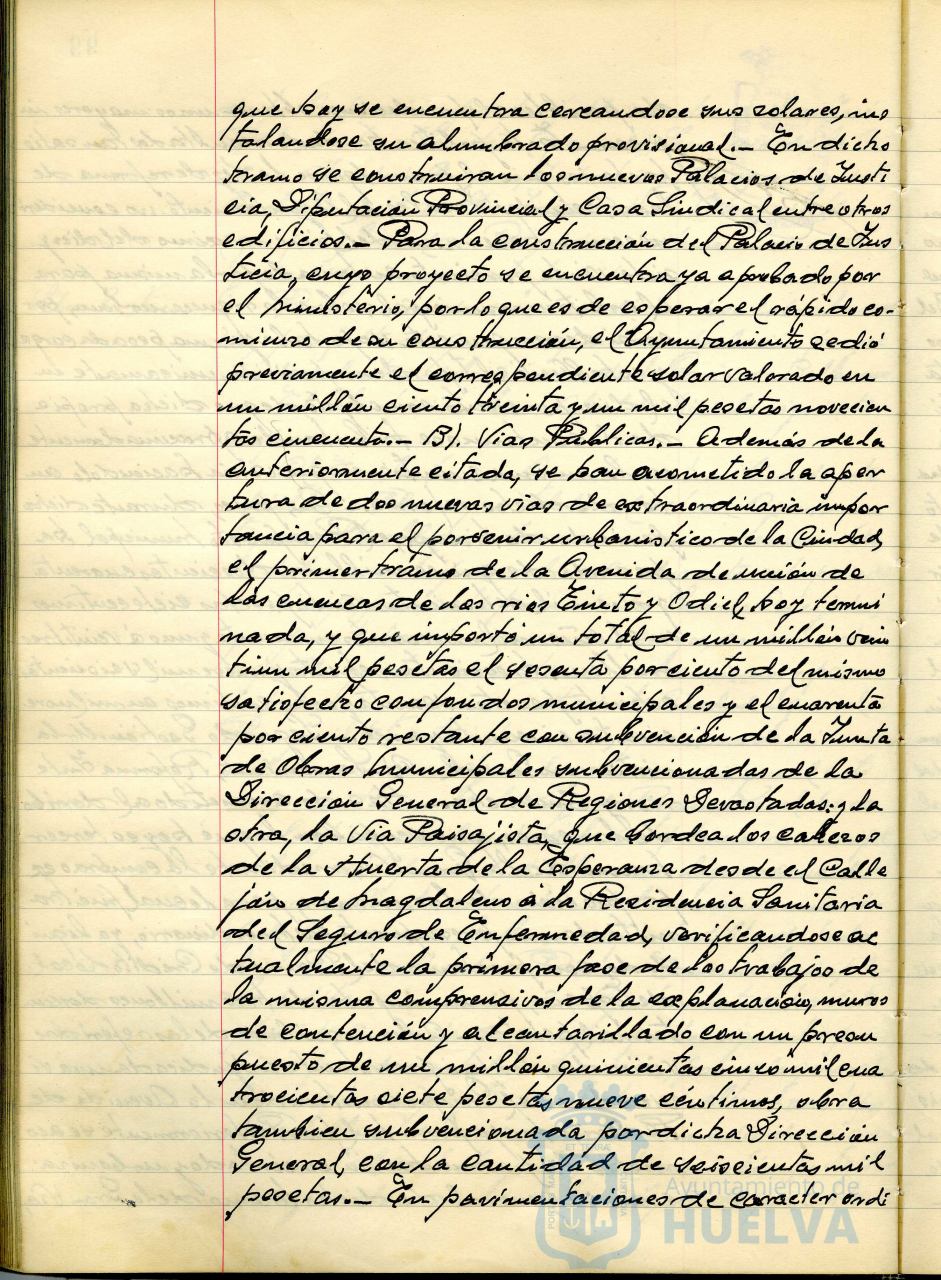 que hoy se encuentra cercandose sus solares, ins
talandose su alumbrado provisional.— En dicho
tramo se construiran los nuevos Palacios de Justi
cia, Diputación Provincial y Casa Sindical entre otros
edificios.— Para la construcción del Palacio de Jus
ticia, cuyo proyecto se encuentra ya aprobado por
el Ministério, por lo que es de esperar el rápido co-
mienzo de su construcción, el Ayuntamiento cedió
previamente el correspendiente solar valorado en
un millón ciento treinta y un mil pesetas novecien
tas cincuenta.— B). Vias Publicas.— Además de la
anteriormente citada, se han acometido la aper
tura de dos nuevas vias de extraordinaria impor
tancia para el porvenir urbanistico de la Ciudad,
el primer tramo de la Avenida de unción de
las cuencas de los rios Tinto y Odiel, hoy termi
nada, y que importó un total de un millón vein
tiun mil pesetas el sesenta por ciento del mismo
satisfecho con fondos municipales y el cuarenta
por ciento restante con subvención de la Junta
de Obras Municipales subvencionadas de la
Dirección General de Regiones Devastadas; y la
otra, la Via Paisajista, que bordea los cabezos
de la Huerta de la Esperanza desde el Calle
jón de Magdaleno á la Residencia Sanitaria
del Seguro de Enfermedad, verificandose ac
tualmente la primera fase de los trabajos de
la misma comprensivos de la explanacio, muros
de contención y alcantarillado con un presu
puesto de un millón quinientas cinco mil cua
trocientas siete pesetas nueve céntimos, obra
tambien subvencionada por dicha Dirección
General, con la cantidad de seiscientas mil
pesetas.— En pavimentaciones de caracter ordi
Ayuntamiento de
HUELVA